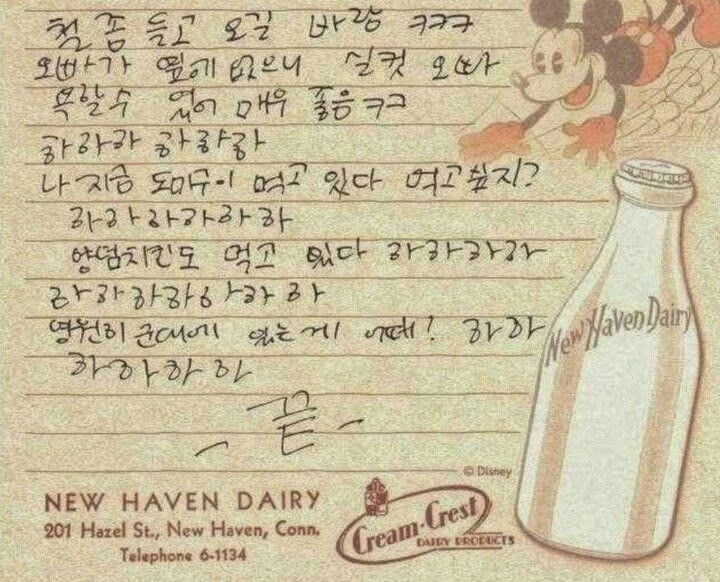 철좀 들고 오길 바람 ㅋㅋㅋ
오빠가 옆에 없으니 실컷 오빠
욕할수 있어 매우 좋음ㅋㅋ
하하하 하하하
나 지금 도미누이 먹고 있다 먹고싶지?
하하하하하하
양념치킨도 먹고 있다 하하하하
하하하하하하하
영원히 군대에 있는게 어때! 하하
하하하하
- 끝 -
© Disney
New Haven Dairy
NEW HAVEN DAIRY
201 Hazel St., New Haven, Conn.
Telephone 6-1134
Cream-Crest
DAIRY PRODUCTS